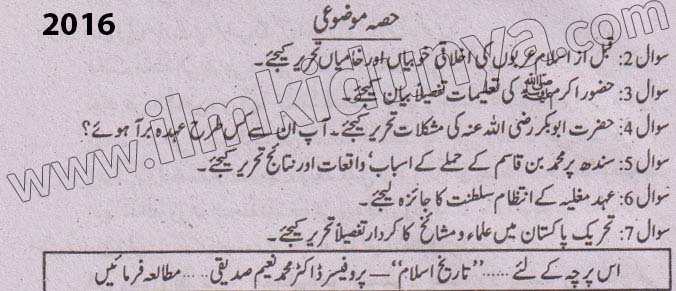 2016
حصہ موضوعی
سوال 2: قبل از اسلام عربوں کی اخلاقی خوبیاں اور خامیاں تحریر کیجئے۔
سوال 3: حضور اکرم ﷺ کی تعلیمات تفصیلاً بیان کیجئے۔
سوال 4: حضرت ابوبکر رضی اللہ عنہ کی مشکلات تحریر کیجئے۔ آپ ان سے کس طرح عہدہ برآ ہوئے؟
سوال 5: سندھ پر محمد بن قاسم کے حملے کے اسباب' واقعات اور نتائج تحریر کیجئے۔
سوال 6: عہد مغلیہ کے انتظام سلطنت کا جائزہ لیجئے۔
سوال 7: تحریک پاکستان میں علماء و مشائخ کا کردار تفصیلاً تحریر کیجئے۔
اس پرچہ کے لئے ...... "تاریخ اسلام" — پروفیسر ڈاکٹر محمد نعیم صدیقی ...... مطالعہ فرمائیں
www.ilmkidunya.com